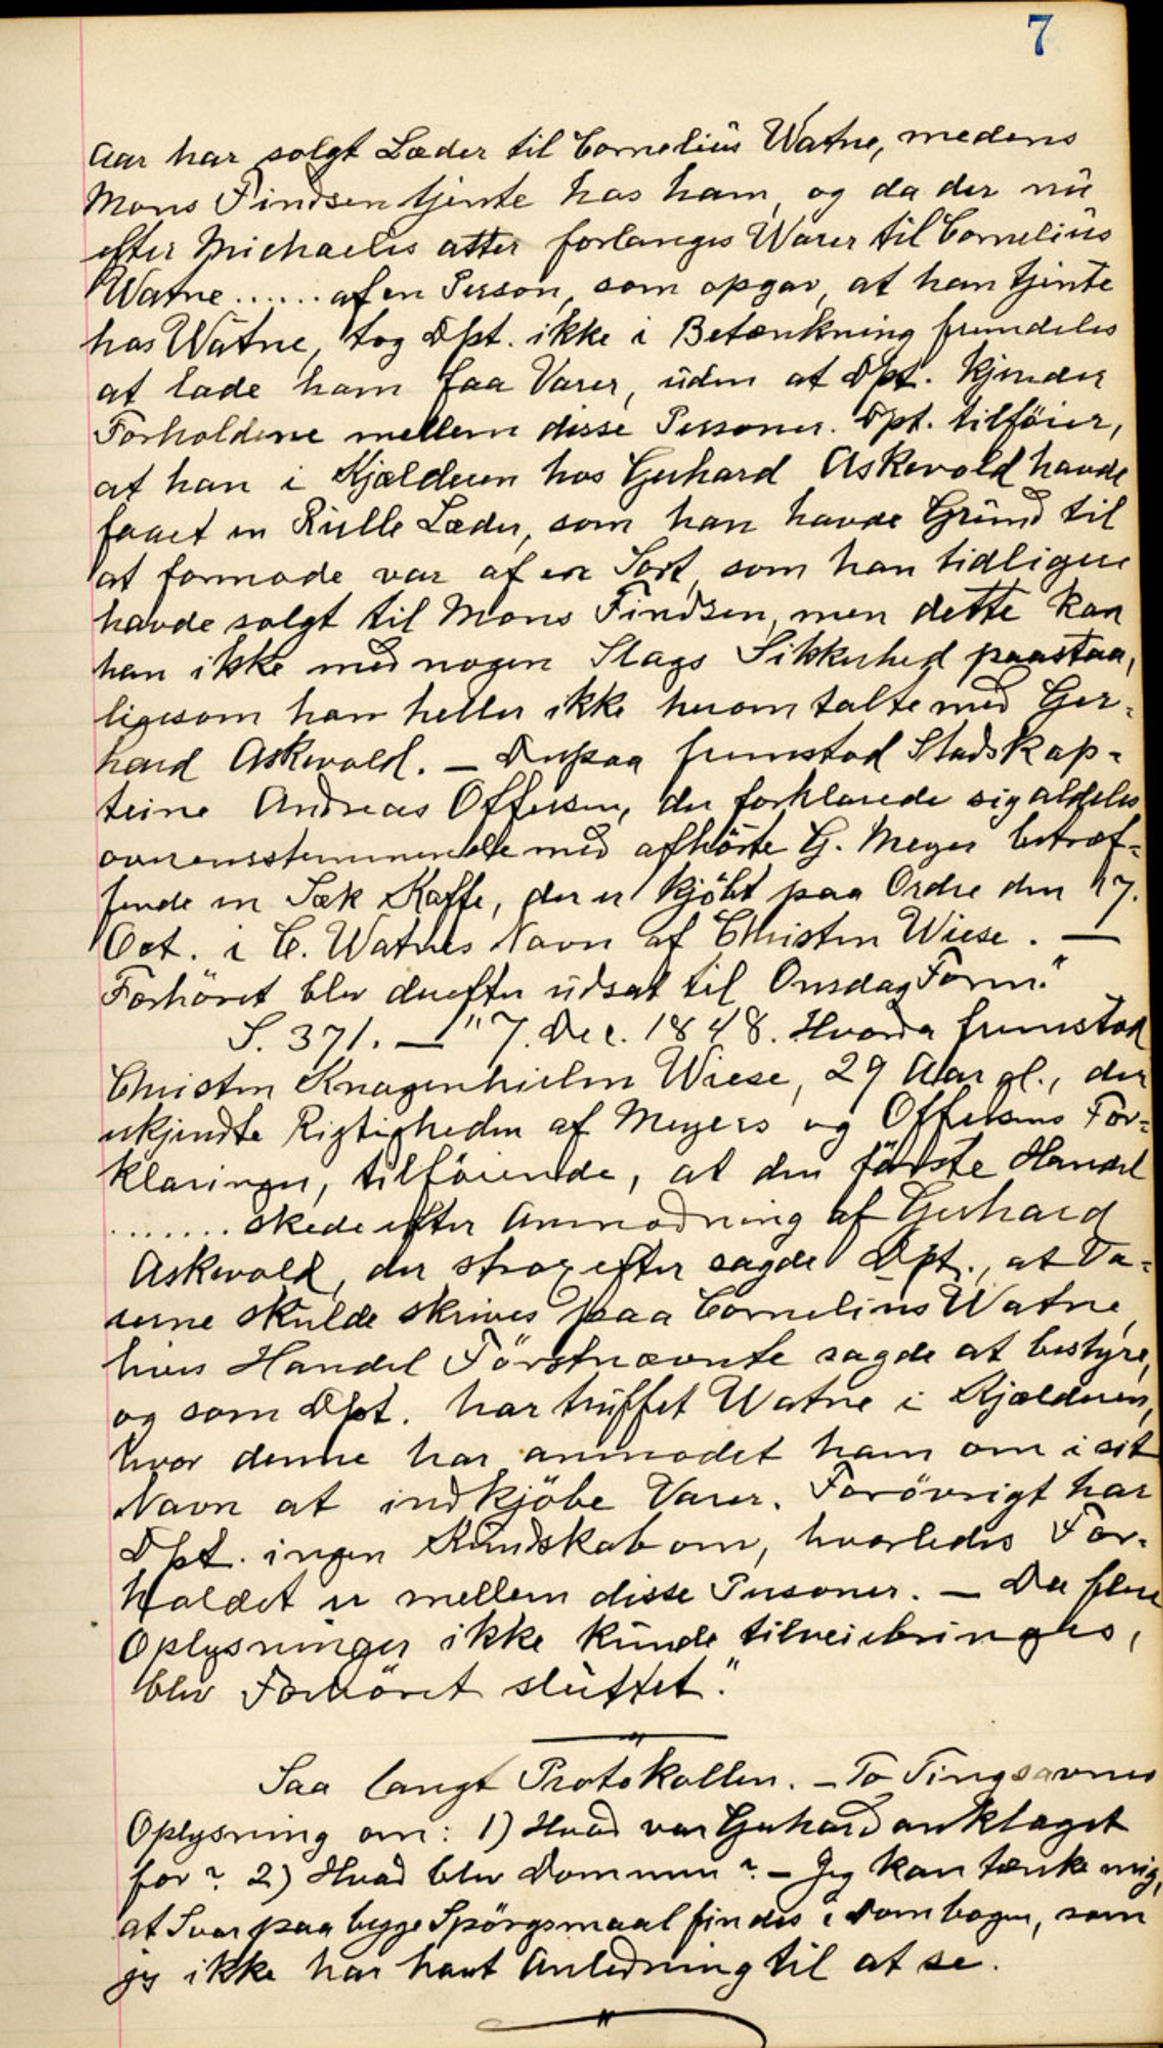 7
Aar har solgt Læder til Cornelius Watne, medens
Mons Findsen tjente hos ham, og da der nu
efter Michaelis atter forlanges Varer til Cornelius
Watne ...... af en Person, som opgav, at han tjente
hos Watne, tog Dpt. ikke i Betænkning fremdeles
at lade ham faa Varer, uden at Dpt. kjender
Forholdene mellem disse Personer. Dpt. tilföier,
at han i Kjælderen hos Gerhard Askevold havde
faaet en Rulle Læder, som han havde Grund til
at formode var af en Sort, som han tidligere
havde solgt til Mons Findsen, men dette kan
han ikke med nogen Slags Sikkerhed paastaa,
ligesom han heller ikke herom talte med Ger-
hard Askevold. — Derpaa fremstod Stadskap-
teine Andreas Offesen, der forklarede sig aldeles
overensstemmende med afhörte G. Meyer betræf-
fende en Sæk Kaffe, der er kjöbt paa Ordre den 27.
Oct. i C. Watnes Navn af Christen Wiese. —
Forhöret blev derefter udsat til Onsdag Form."
S. 371. — "7. Dec. 1848. Hvorda fremstod
Christen Knagenhielm Wiese, 29 Aar gl., der
erkjendte Rigtigheden af Meyers og Offesens For-
klaringer, tilföiende, at den förste Handel
....... skede efter Anmodning af Gerhard
Askevold, der strax efter sagde Dpt., at Va-
rerne skulde skrives paa Cornelius Watne,
hvis Handel Förstnævnte sagde at bestyre,
og som Dpt. har truffet Watne i Kjælderen,
hvor denne har anmodet ham om i sit
Navn at indkjöbe Varer. Forövrigt har
Dpt. ingen Kundskab om, hvorledes For-
holdet er mellem disse Personer. — Da flere
Oplysninger ikke kunde tilveiebringes,
blev Forhöret sluttet."
Saa langt Protokollen. — To Ting savnes
Oplysning om: 1) Hvad var Gerhard anklaget
for? 2) Hvad blev Dommen? — Jeg kan tænke mig,
at Svar paa begge Spörgsmaal findes i Dombogen, som
jeg ikke har havt Anledning til at se.